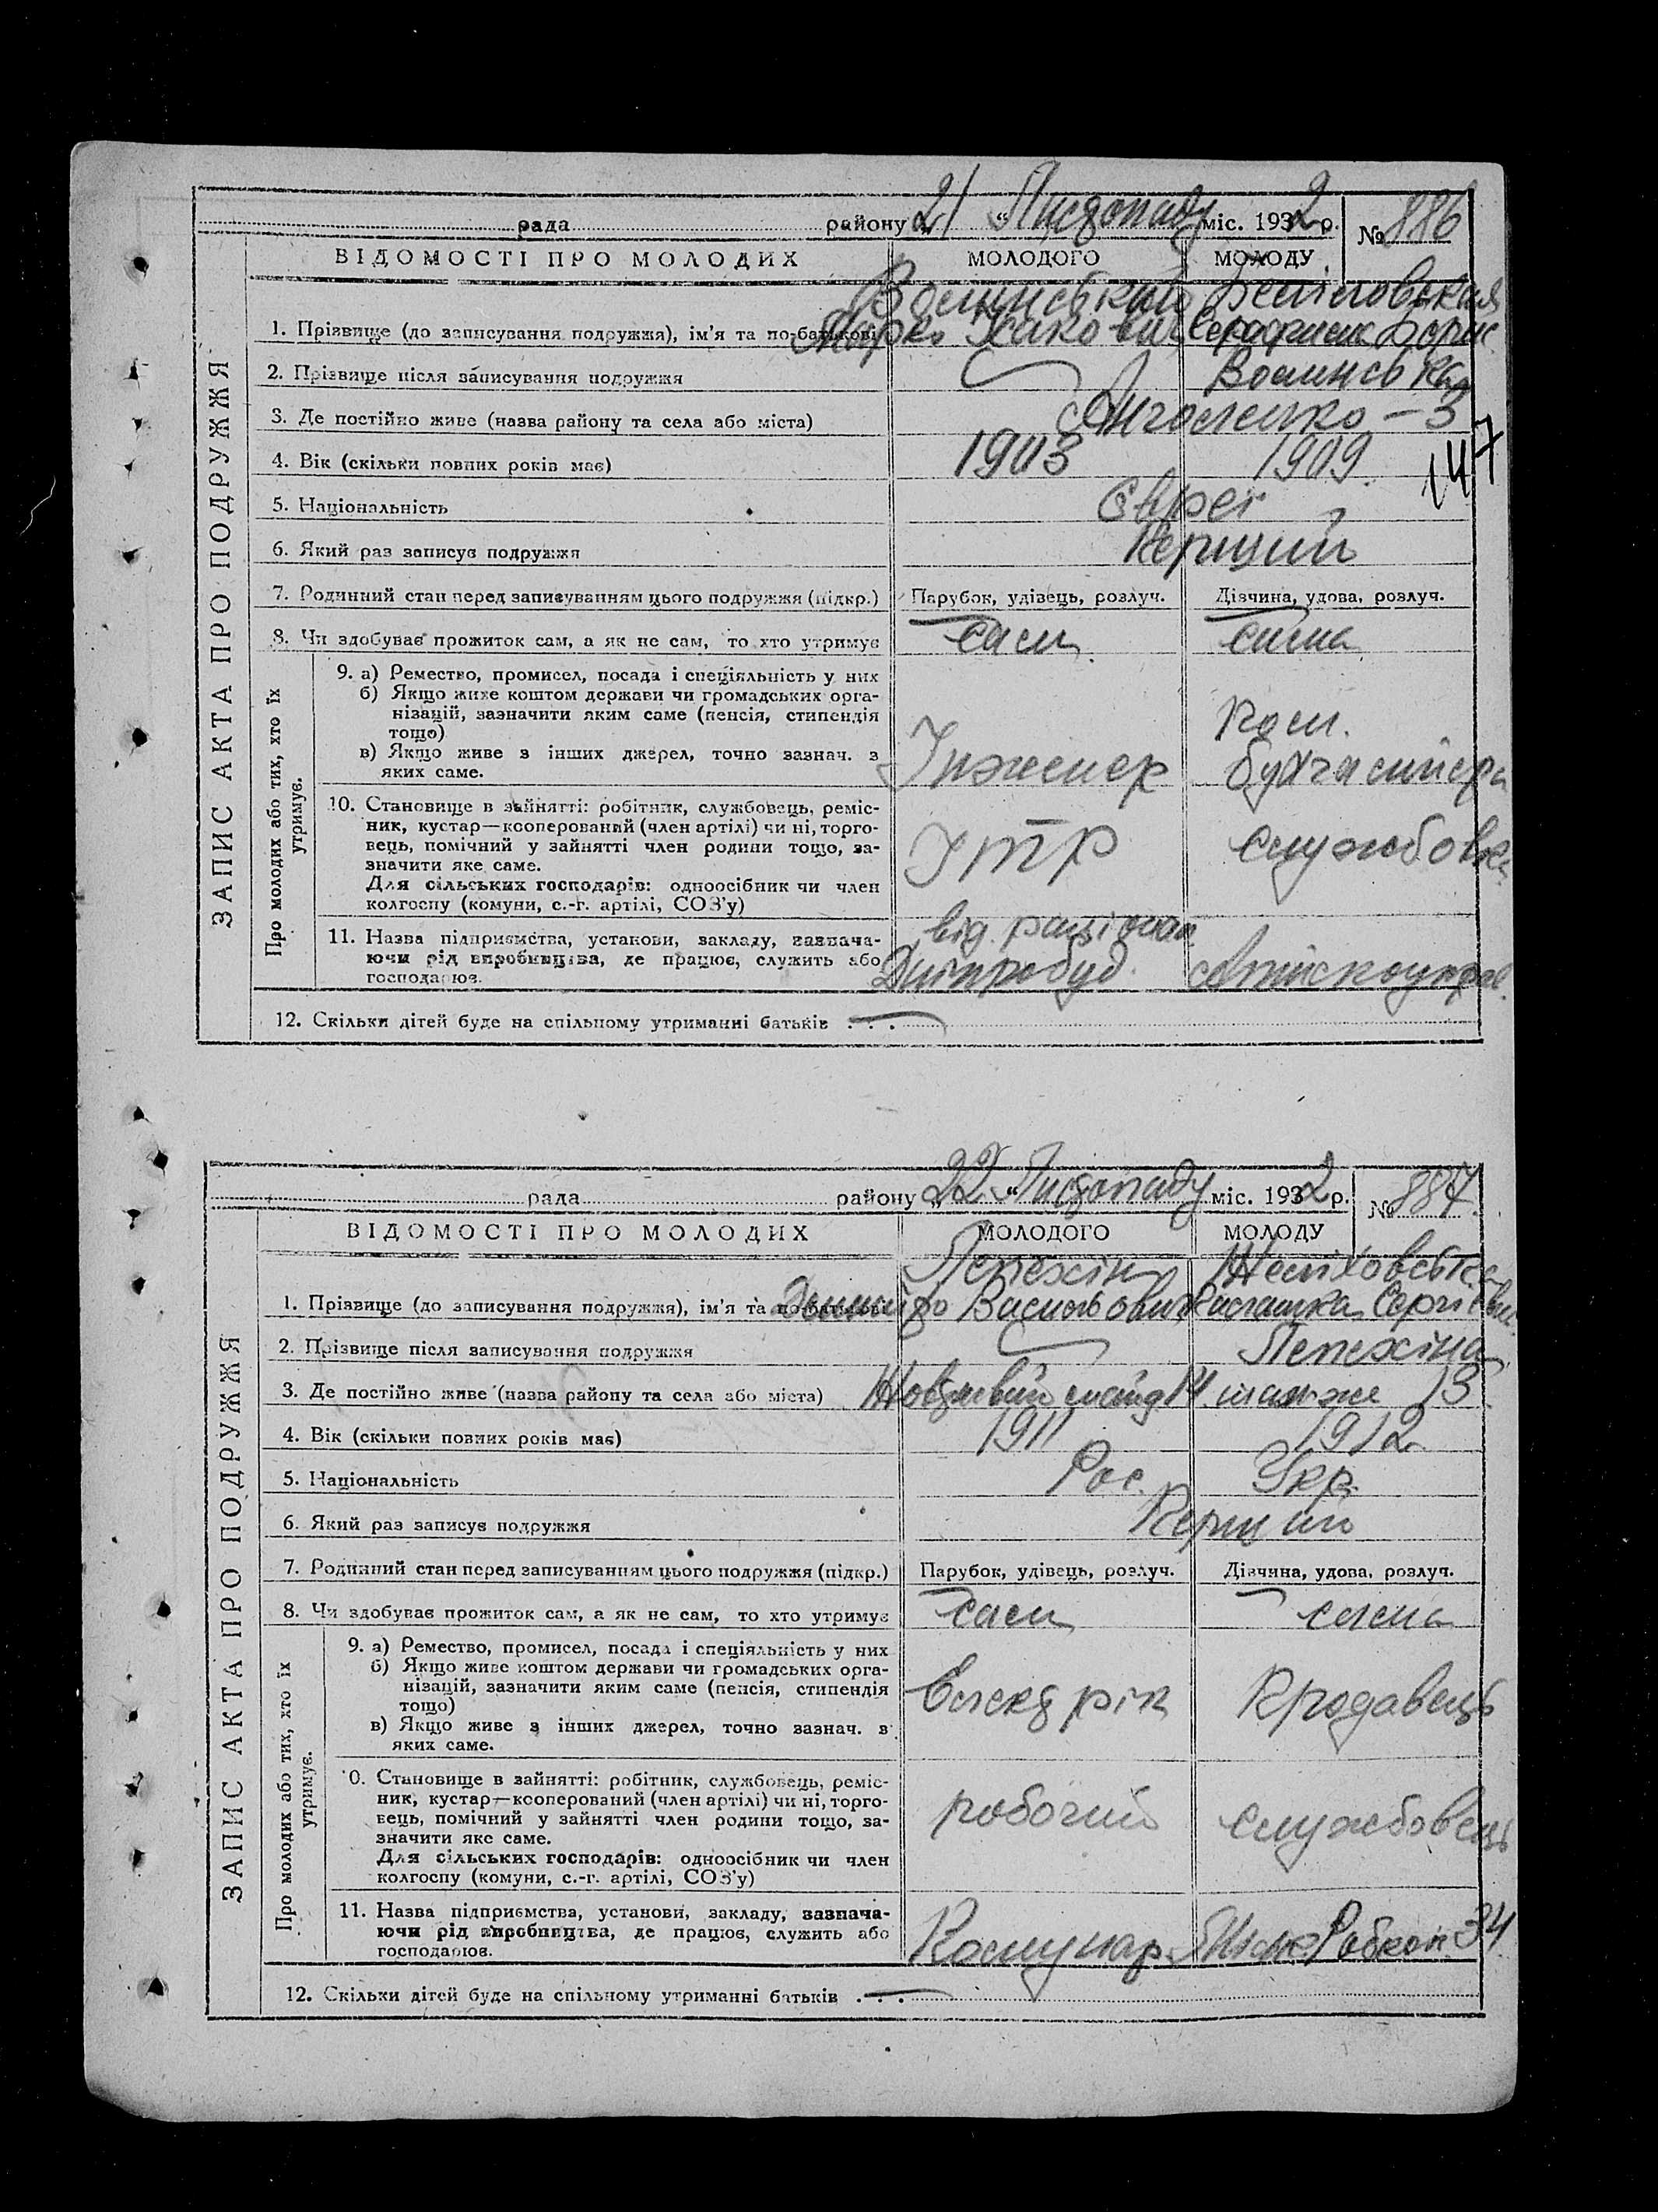 рада району „21 “ Листопаду міс. 1932 р. № 886
ВІДОМОСТІ ПРО МОЛОДИХ МОЛОДОГО МОЛОДУ
Волинський
1. Прізвище (до записування подружжя), ім'я та по-батькові Марко Ісакович Серафима Борис.
2. Прізвище після записування подружжя Волинська
3. Де постійно живе (назва району та села або міста) 3
4. Вік (скільки повних років має) 1903 1909
147
5. Національність Євреї
6. Який раз записує подружжя Перший
7. Родинний стан перед записуванням цього подружжя (підкр.) Парубок, удівець, розлуч. Дівчина, удова, розлуч.
8. Чи здобуває прожиток сам, а як не сам, то хто утримує сам сама
ЗАПИС АКТА ПРО ПОДРУЖЖЯ
Про молодих або тих, хто їх утримує.
9. а) Ремество, промисел, посада і спеціяльність у них
б) Якщо живе коштом держави чи громадських орга-
нізацій, зазначити яким саме (пенсія, стипендія
тощо)
в) Якщо живе з інших джерел, точно зазнач. з
яких саме.
Інженер
пом.
бухгалтера
10. Становище в зайнятті: робітник, службовець, реміс-
ник, кустар—кооперований (член артілі) чи ні, торго-
вець, помічний у зайнятті член родини тощо, за-
значити яке саме.
Для сільських господарів: одноосібник чи член
колгоспу (комуни, с.-г. артілі, СОЗ'у)
ІТР службовец
11. Назва підприємства, установи, закладу, зазнача-
ючи рід виробництва, де працює, служить або
господарює.
від. раціонал.
Дніпробуд
12. Скільки дітей буде на спільному утриманні батьків . . .
рада району „22 “ Листопаду міс. 1932 р. № 887
ВІДОМОСТІ ПРО МОЛОДИХ МОЛОДОГО МОЛОДУ
Лепехін
1. Прізвище (до записування подружжя), ім'я та по-батькові Дмитро Васильович Сергіївн.
2. Прізвище після записування подружжя Лепехіна
3. Де постійно живе (назва району та села або міста) 14 13
4. Вік (скільки повних років має) 1911 1912
5. Національність Рос. Укр.
6. Який раз записує подружжя Перший
7. Родинний стан перед записуванням цього подружжя (підкр.) Парубок, удівець, розлуч. Дівчина, удова, розлуч.
8. Чи здобуває прожиток сам, а як не сам, то хто утримує сам сама
ЗАПИС АКТА ПРО ПОДРУЖЖЯ
Про молодих або тих, хто їх утримує.
9. а) Ремество, промисел, посада і спеціяльність у них
б) Якщо живе коштом держави чи громадських орга-
нізацій, зазначити яким саме (пенсія, стипендія
тощо)
в) Якщо живе з інших джерел, точно зазнач. з
яких саме.
Електрік Продавець
0. Становище в зайнятті: робітник, службовець, реміс-
ник, кустар—кооперований (член артілі) чи ні, торго-
вець, помічний у зайнятті член родини тощо, за-
значити яке саме.
Для сільських господарів: одноосібник чи член
колгоспу (комуни, с.-г. артілі, СОЗ'у)
робочий службовець
11. Назва підприємства, установи, закладу, зазнача-
ючи рід виробництва, де працює, служить або
господарює.
Комунар Робкоп 34
12. Скільки дітей буде на спільному утриманні батьків . . .